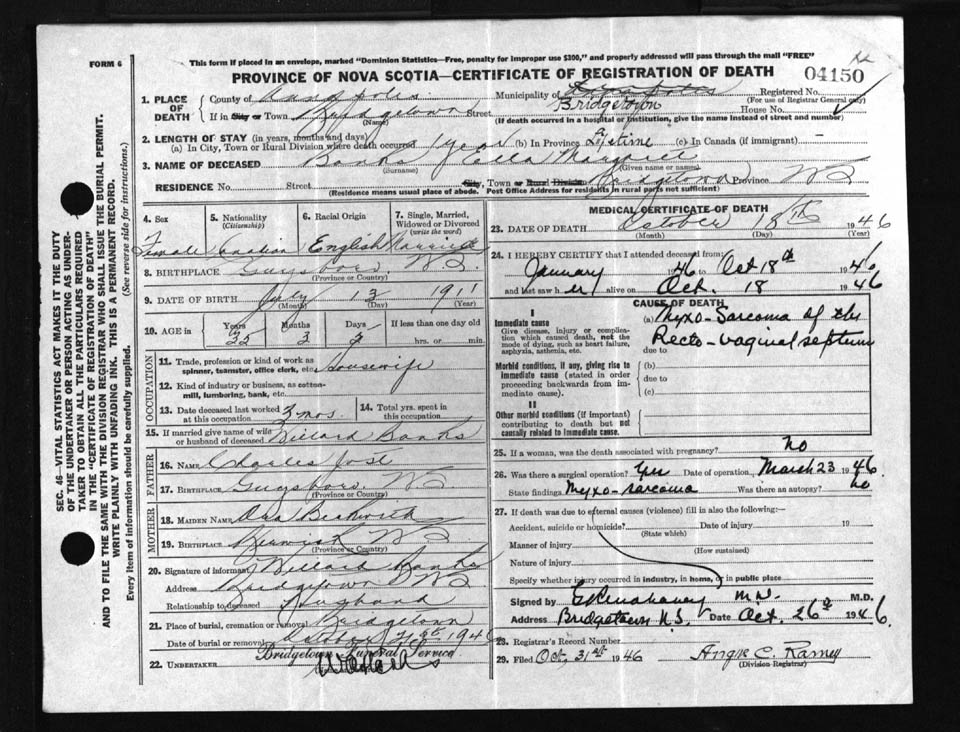 FORM 6
This form if placed in an envelope, marked "Dominion Statistics—Free, penalty for improper use $300," and properly addressed will pass through the mail "FREE"
PROVINCE OF NOVA SCOTIA—CERTIFICATE OF REGISTRATION OF DEATH
04150
1. PLACE OF DEATH
County of Annapolis
Municipality of
Registered No.
(For use of Registrar General only)
If in City or Town Bridgetown Street Bridgetown House No.
(Name)
(If death occurred in a hospital or institution, give the name instead of street and number)
2. LENGTH OF STAY (in years, months and days)
(a) In City, Town or Rural Division where death occurred 1 year (b) In Province Lifetime (c) In Canada (if immigrant)
3. NAME OF DECEASED Banks Margaret
(Surname) (Given name or names)
RESIDENCE No. Street City, Town or Rural Division Bridgetown Province N S
(Residence means usual place of abode. Post Office Address for residents in rural parts not sufficient)
4. Sex Female
5. Nationality (Citizenship) Canadian
6. Racial Origin English
7. Single, Married, Widowed or Divorced (write the word) Married
8. BIRTHPLACE Guysboro N.S.
(Province or Country)
9. DATE OF BIRTH July 13 1911
(Month) (Day) (Year)
10. AGE in Years Months Days If less than one day old
35 3 hrs. or min.
OCCUPATION
11. Trade, profession or kind of work as spinner, teamster, office clerk, etc. Housewife
12. Kind of industry or business, as cotton-mill, lumbering, bank, etc.
13. Date deceased last worked at this occupation 3 mos.
14. Total yrs. spent in this occupation
15. If married give name of wife or husband of deceased Willard Banks
FATHER
16. NAME Charles Jost
17. BIRTHPLACE Guysboro N S
(Province or Country)
MOTHER
18. MAIDEN NAME Ora Beckwith
19. BIRTHPLACE Berwick N S
(Province or Country)
20. Signature of informant Willard Banks
Address Bridgetown N S
Relationship to deceased Husband
21. Place of burial, cremation or removal Bridgetown
Date of burial or removal October 21st 1946
Bridgetown Funeral Service
22. UNDERTAKER
MEDICAL CERTIFICATE OF DEATH
23. DATE OF DEATH October 18th 1946
(Month) (Day) (Year)
24. I HEREBY CERTIFY that I attended deceased from:
January 1946 to Oct 18th 1946
and last saw her alive on Oct. 18 1946
CAUSE OF DEATH
I
Immediate cause
Give disease, injury or complication which caused death, not the mode of dying, such as heart failure, asphyxia, asthenia, etc.
(a) Myxo-Sarcoma of the
Recto-vaginal septum
due to
Morbid conditions, if any, giving rise to immediate cause (stated in order proceeding backwards from immediate cause).
(b)
due to
(c)
II
Other morbid conditions (if important) contributing to death but not causally related to immediate cause.
25. If a woman, was the death associated with pregnancy? No
26. Was there a surgical operation? Yes Date of operation, March 23 1946
State findings Myxo-sarcoma Was there an autopsy? No
27. If death was due to external causes (violence) fill in also the following:—
Accident, suicide or homicide? Date of injury 19
(State which)
Manner of injury
(How sustained)
Nature of injury
Specify whether injury occurred in industry, in home, or in public place
Signed by M.D. M.D.
Address Bridgetown N.S. Date Oct. 26th 1946
28. Registrar's Record Number
29. Filed Oct. 31st 1946 Angie C. Ramey
(Division Registrar)
SEC. 46 VITAL STATISTICS ACT MAKES IT THE DUTY
OF THE UNDERTAKER OR PERSON ACTING AS UNDER-
TAKER TO OBTAIN ALL THE PARTICULARS REQUIRED
IN THE "CERTIFICATE OF REGISTRATION OF DEATH"
AND TO FILE THE SAME WITH THE DIVISION REGISTRAR WHO SHALL ISSUE THE BURIAL PERMIT.
WRITE PLAINLY WITH UNFADING INK. THIS IS A PERMANENT RECORD.
Every item of information should be carefully supplied. (See reverse side for instructions.)